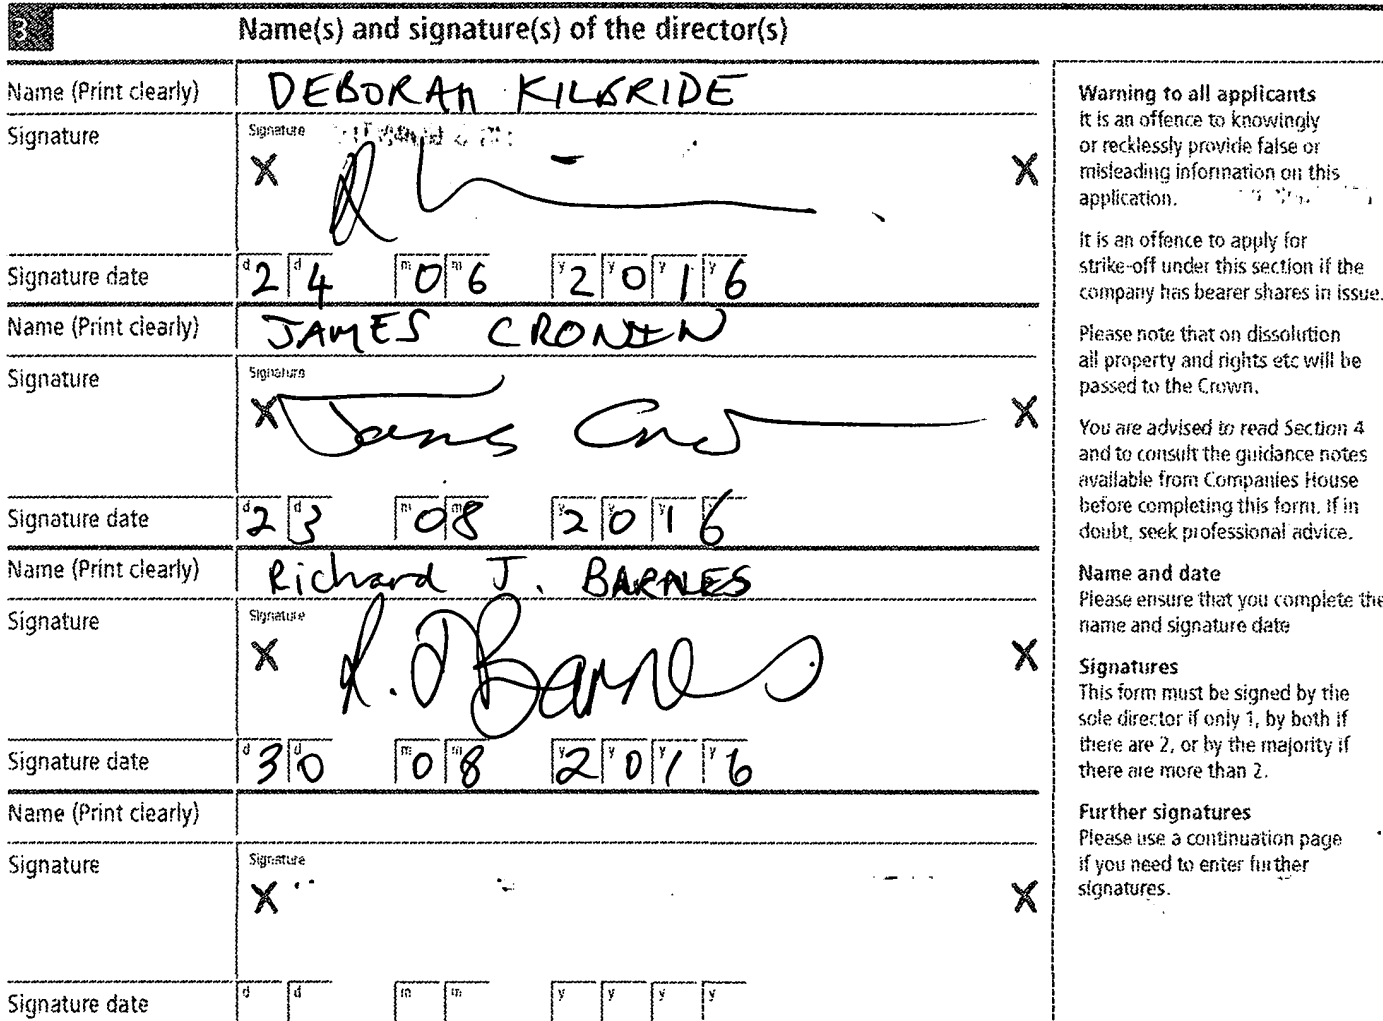 3 Name(s) and signature(s) of the director(s)
Name (Print clearly) DEBORAH KILBRIDE
Signature Signature
X X
Signature date d2 d4 m0 m6 y2 y0 y1 y6
Name (Print clearly) JAMES CRONIN
Signature Signature
X James X
Signature date d2 d3 m0 m8 y2 y0 y1 y6
Name (Print clearly) Richard J. BARNES
Signature Signature
X R. J Barnes X
Signature date d3 d0 m0 m8 y2 y0 y1 y6
Name (Print clearly)
Signature Signature
X X
Signature date d d m m y y y y
Warning to all applicants
It is an offence to knowingly
or recklessly provide false or
misleading information on this
application.
It is an offence to apply for
strike-off under this section if the
company has bearer shares in issue.
Please note that on dissolution
all property and rights etc will be
passed to the Crown.
You are advised to read Section 4
and to consult the guidance notes
available from Companies House
before completing this form. If in
doubt, seek professional advice.
Name and date
Please ensure that you complete the
name and signature date
Signatures
This form must be signed by the
sole director if only 1, by both if
there are 2, or by the majority if
there are more than 2.
Further signatures
Please use a continuation page
if you need to enter further
signatures.